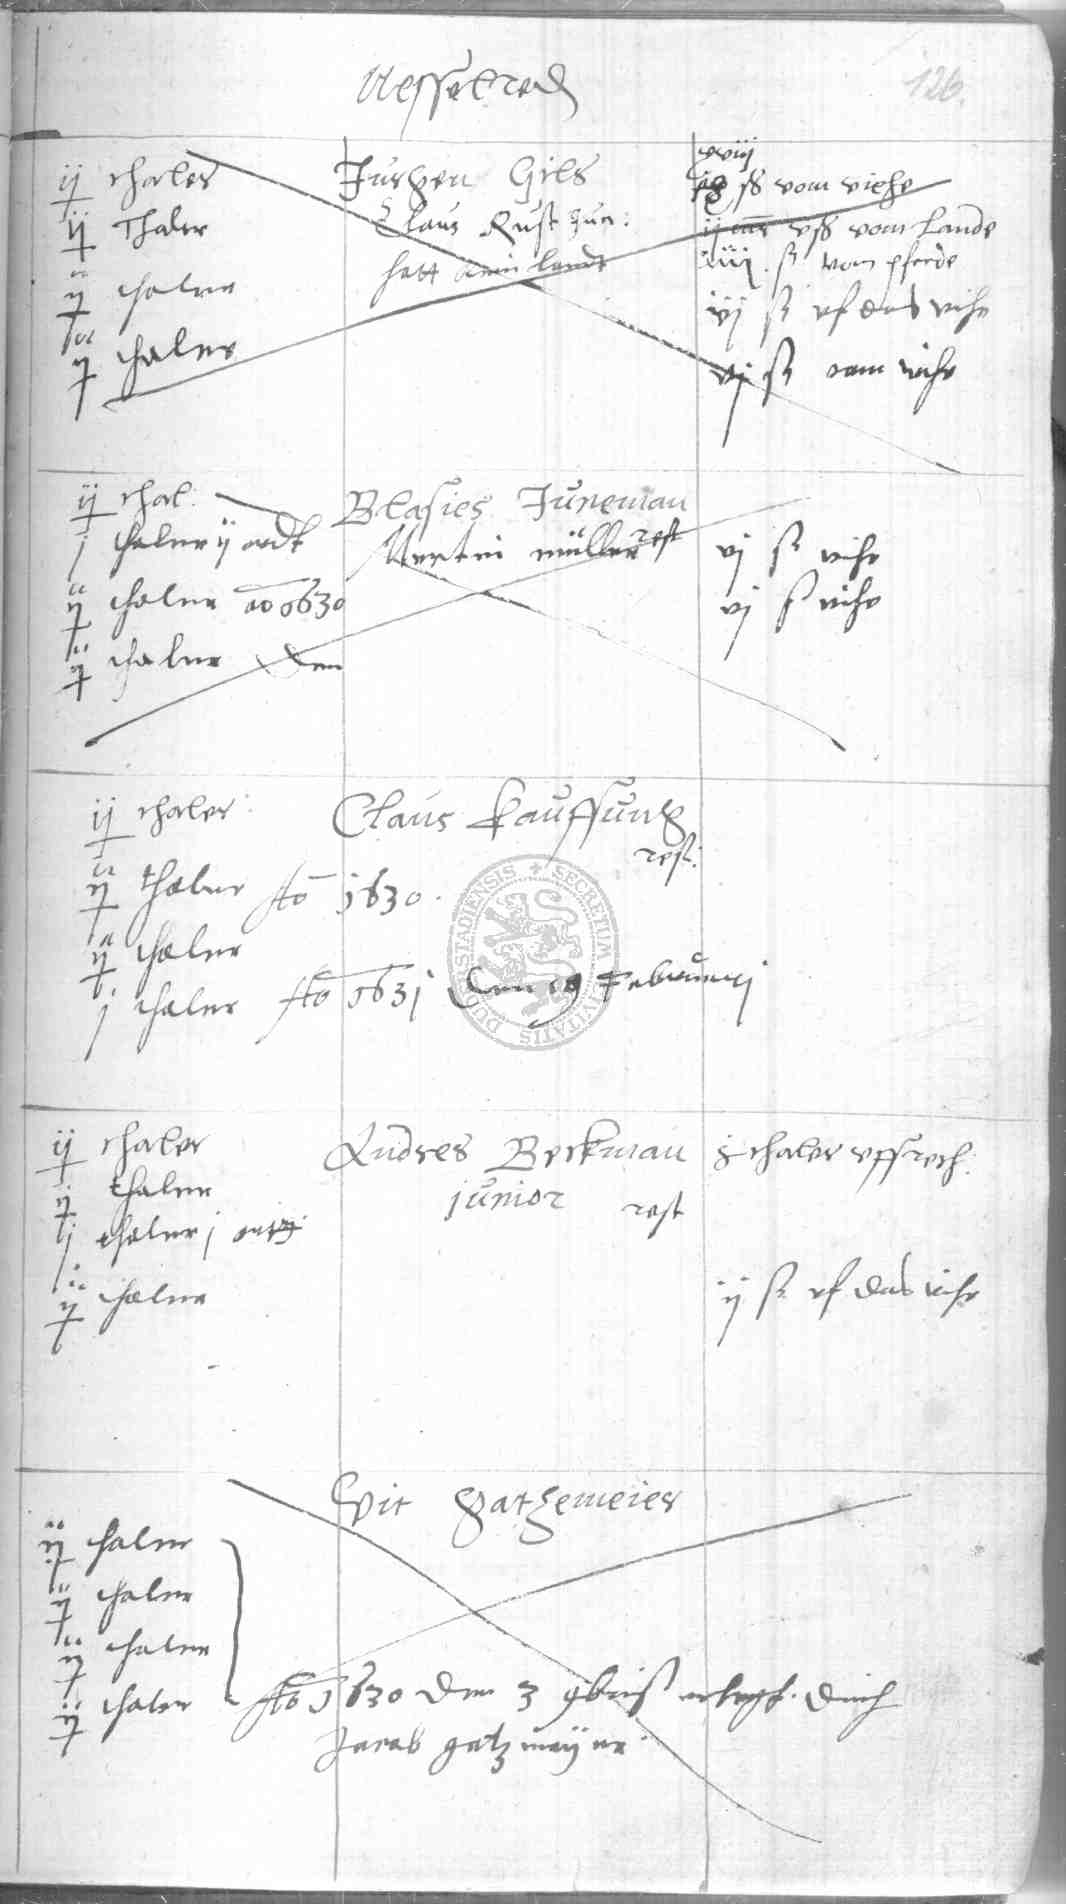 Nesselred
126.
ij thaler Jurgen Gils xviij
ß vom viehe
ij Thaler Claus Rust Jun: ß vom Lande
hatt kein landt xiiij ß vom pferde
ij thaler iij ß uf das vihe
ij thaler vj ß vom vihe
ij thal: Blasies Juneman
j thaler ij ordt Merten müller rest vj ß vihe
ij thaler ao 1630 vj ß vihe
ij thaler den
ij thaler: Claus Kauffung
rest:
ij thaler Ao 1630.
ij thaler
j thaler Ao 1631 den 19 Februarij
SECRETUM CIVITATIS DUDERSTADIENSIS
ij thaler Andres Beckman thaler uffrech:
ij thaler junior rest
j thaler j
ij thaler ij ß uf das vihe
Vit Gatzemeier
ij thaler
ij thaler
ij thaler
ij thaler Ao 1630 den 3 9bris erlegt. durch
Jacob gatzmeijer